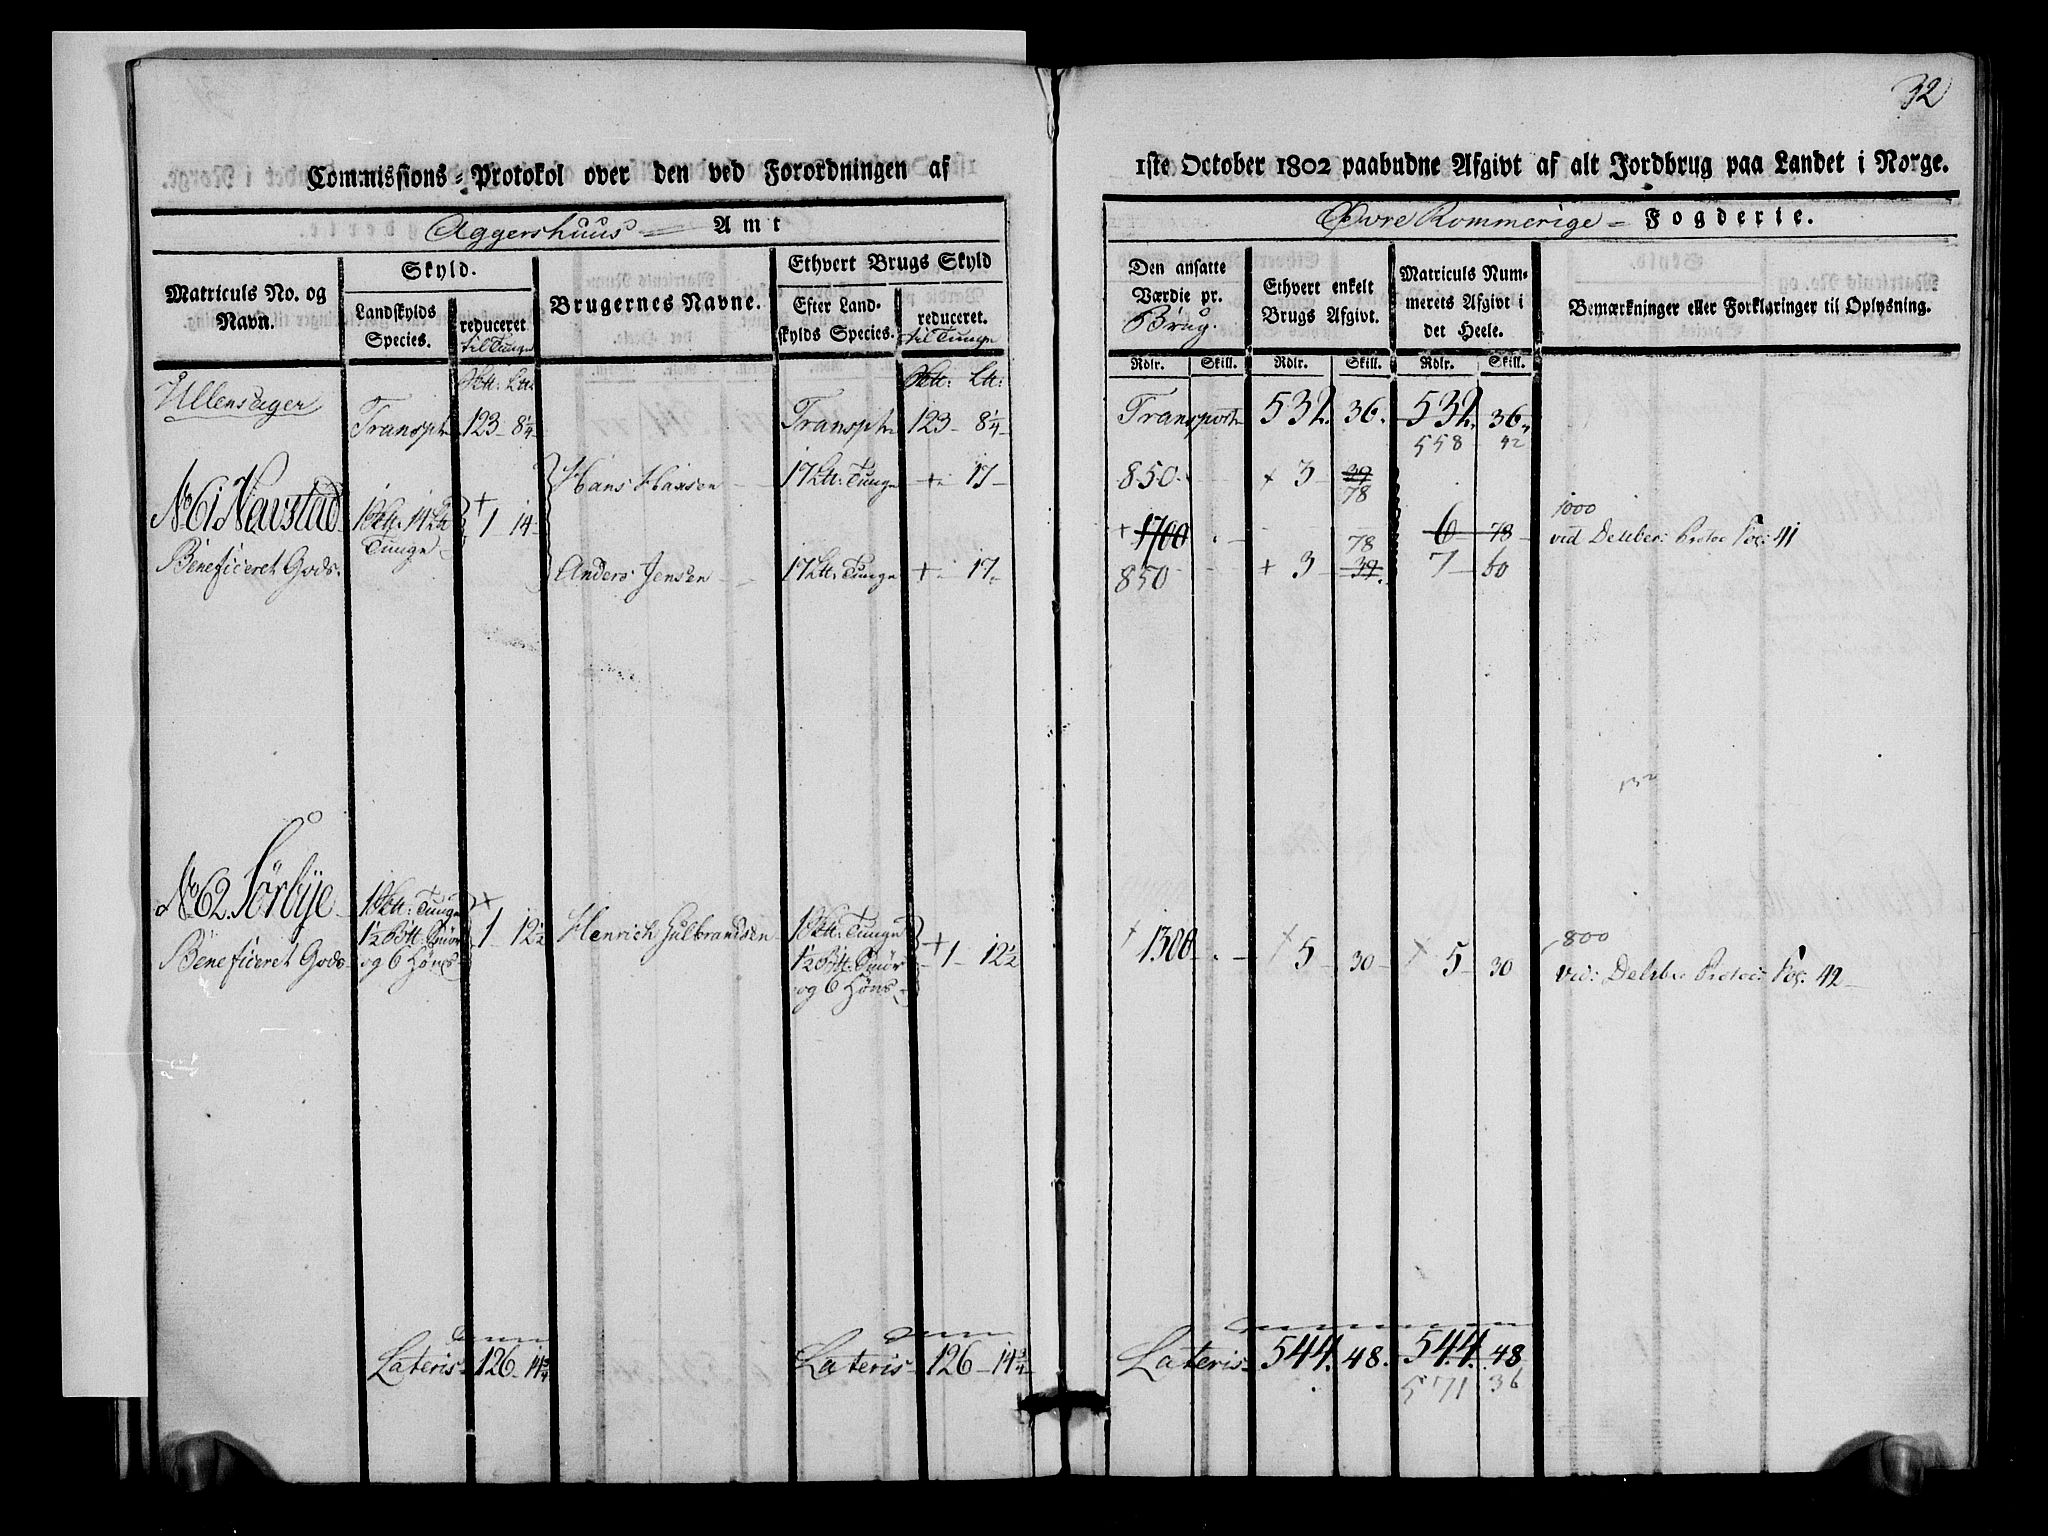 32
Commissions-Protokol over den ved Forordningen af 1ste October 1802 paabudne Afgivt af alt Jordbrug paa Landet i Norge.
Aggershuus Amt
Øvre Rommerige Fogderie.
Matriculs No. og Navn.
Skyld.
Landskylds Species.
reduceret til Tunge
Brugernes Navne.
Ethvert Brugs Skyld
Efter Landskylds Species.
reduceret. til Tunge
Den ansatte Værdie pr. Brug.
Ethvert enkelt Brugs Afgivt.
Matriculs Nummerets Afgivt i det Heele.
Bemærkninger eller Forklaringer til Oplysning.
Rdlr. Skill. Rdlr. Skill. Rdlr. Skill.
Ullensager
Transpt. 123 - 8¼ Transpt. 123 - 8¼ Transport 532. 36. 532. 36.
558 42
Hans Hansen 17 Ltt: Tunge 17 850 + 3 39
78
No 61 Navstad 1 14 + 1 - 14 + 1700 6 78
Tunge
1000
vid Delber: Protoc Pag: 41
78
Beneficeret Gods. Anders Jensen 17 Ltt. Tunge + 17 850 + 3 39. 7 60
No 62. Sørbye Tunge + 1 - 12½ Henrich Gulbrandsen Tunge + 1 - 12½ + 1300 + 5 30 + 5 30
1½ Smør
og 6 Høns
Beneficeret Gods
1½ Smør
og 6 Høns
800
vid: Delber Protoc: Pag. 42
Lateris 126 - 14¾ Lateris 126 - 14¾ Lateris 544. 48. 544. 48
571 36